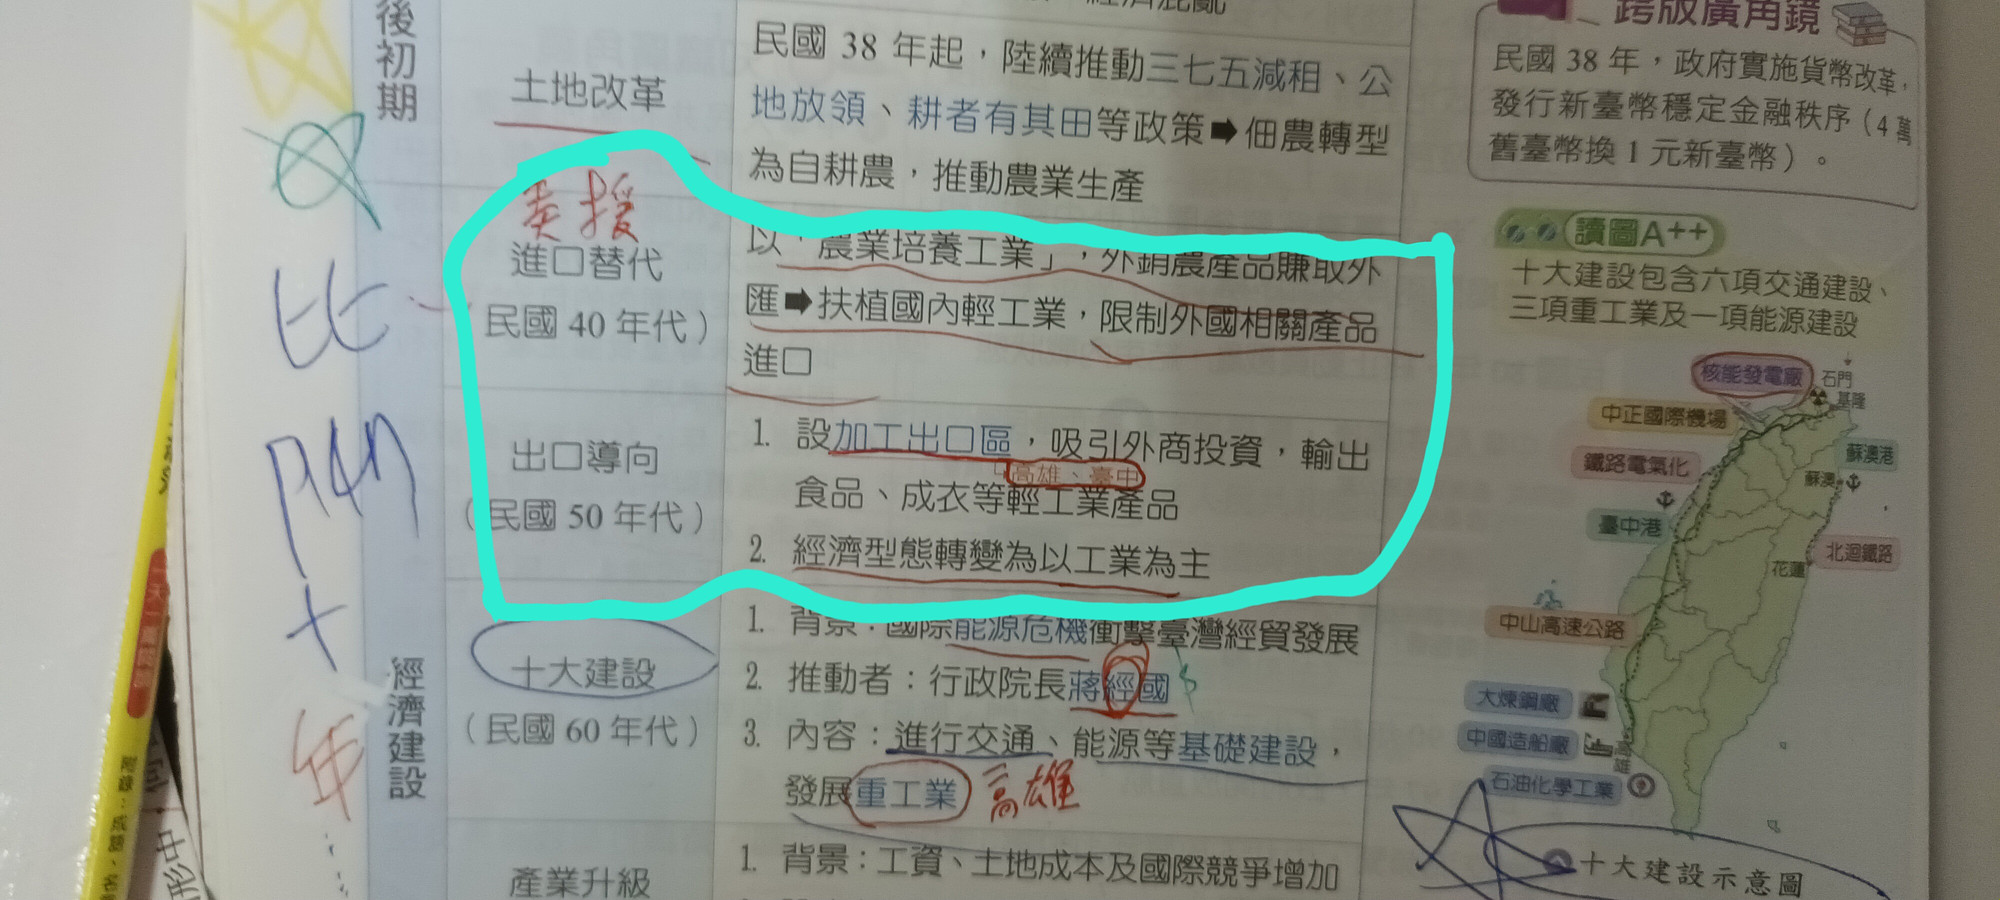 後初期
土地改革
民國 38 年起，陸續推動三七五減租、公
地放領、耕者有其田等政策➡佃農轉型
為自耕農，推動農業生產
經濟建設
美援
進口替代
（民國 40 年代）
以「農業培養工業」，外銷農產品賺取外
匯➡扶植國內輕工業，限制外國相關產品
進口
出口導向
（民國 50 年代）
1. 設加工出口區，吸引外商投資，輸出
高雄、臺中
食品、成衣等輕工業產品
2. 經濟型態轉變為以工業為主
十大建設
（民國 60 年代）
1. 背景：國際能源危機衝擊臺灣經貿發展
2. 推動者：行政院長蔣經國
3. 內容：進行交通、能源等基礎建設，
發展重工業 高雄
產業升級
1. 背景：工資、土地成本及國際競爭增加
跨版廣角鏡
民國 38 年，政府實施貨幣改革，
發行新臺幣穩定金融秩序（4 萬
舊臺幣換 1 元新臺幣）。
讀圖A++
十大建設包含六項交通建設、
三項重工業及一項能源建設
核能發電廠
石門
基隆
中正國際機場
鐵路電氣化
蘇澳港
蘇澳
臺中港
北迴鐵路
花蓮
中山高速公路
大煉鋼廠
中國造船廠
高雄
石油化學工業
十大建設示意圖
年